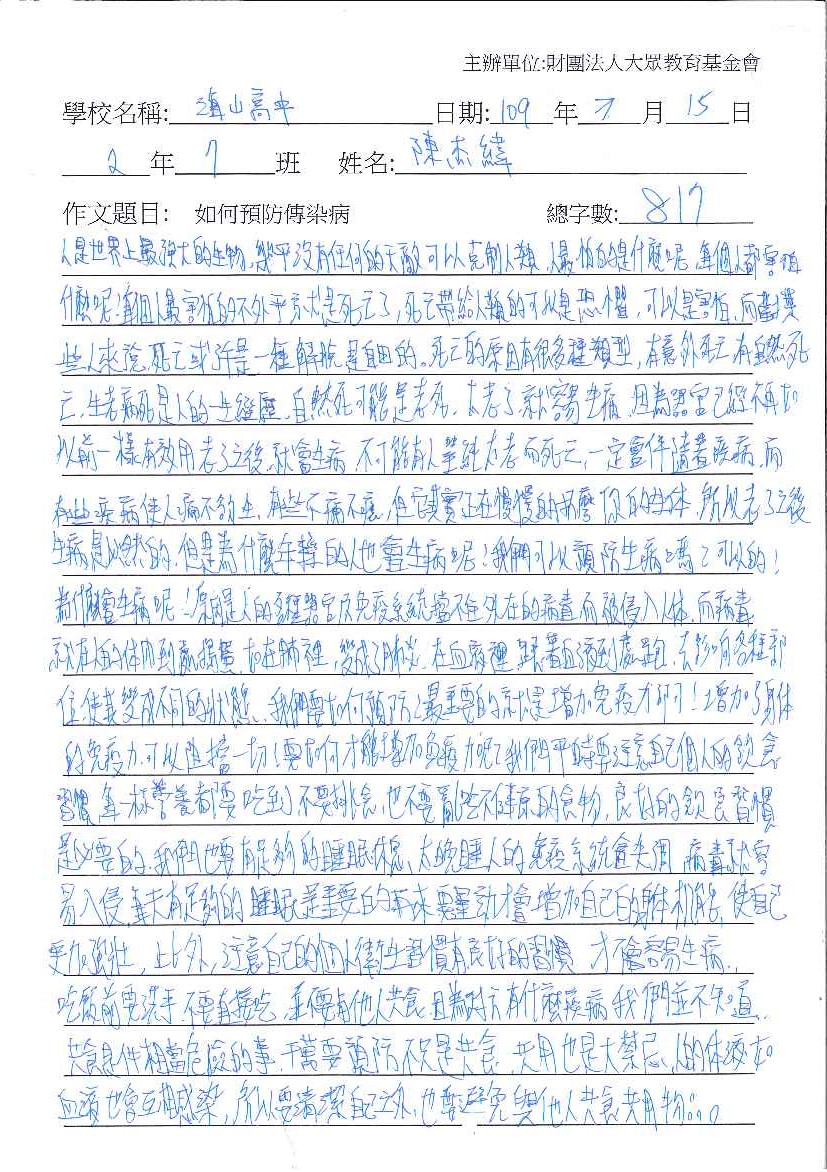 主辦單位:財團法人大眾教育基金會
學校名稱: 海山高中 日期: 109 年 7 月 15 日
2 年 7 班 姓名: 陳杰緯
作文題目: 如何預防傳染病 總字數: 817
人是世界上最強大的生物,幾乎沒有任何的天敵可以克制人類,人最怕的是什麼呢,每個人都害怕
什麼呢?每個人最害怕的不外乎亦是死亡了,死亡帶給人類的可以是恐懼,可以是害怕,而對某
些人來說,死亡或許是一種解脫,是自由的。死亡的原因有很多種類型,有意外死亡有自然死
亡,生老病死是人的一生經歷,自然死可能是老死,太老了就容易生病,因為器官已經不再如
以前一樣有效用,老了之後就會生病,不可能有人單純太老而死亡,一定會伴隨著疾病,而
有些疾病使人痛不欲生,有些不痛不癢,但它其實正在慢慢的折磨你的身體,所以老了之後
生病是必然的,但是為什麼年輕的人也會生病呢!我們可以預防生病嗎?可以的!
為什麼會生病呢!原因是人的各種器官及免疫系統擋不住外在的病毒而被侵入人體,而病毒
就在人的體內到處搗蛋,如在肺裡,變成了肺炎,在血液裡,跟著血液到處跑,去影響各種部
位,使其變成不同的狀態,我們要如何預防?最重要的就是增加免疫力才可!增加了身體
的免疫力,可以阻擋一切!要如何才能增加免疫力呢?我們平時要注意自己個人的飲食
習慣,每一樣營養都要吃到,不要挑食,也不要亂吃不健康的食物,良好的飲食習慣
是必要的,我們也要有足夠的睡眠休息,太晚睡人的免疫系統會失調,病毒就容
易入侵,每天有足夠的睡眠是重要的 要運動才會增加自己的身體機能,使自己
更加強壯,此外,注意自己的個人衛生習慣有良好的習慣,才不會容易生病,
吃飯前要洗手,不要直接吃,並不要與他人共食,因為對方有什麼疾病我們並不知道,
共食是件相當危險的事,千萬要預防不只是共食,共用也是大禁忌,人的體液如
血液也會互相感染,所以要清潔自己之外,也要避免與他人共食共用物。。。